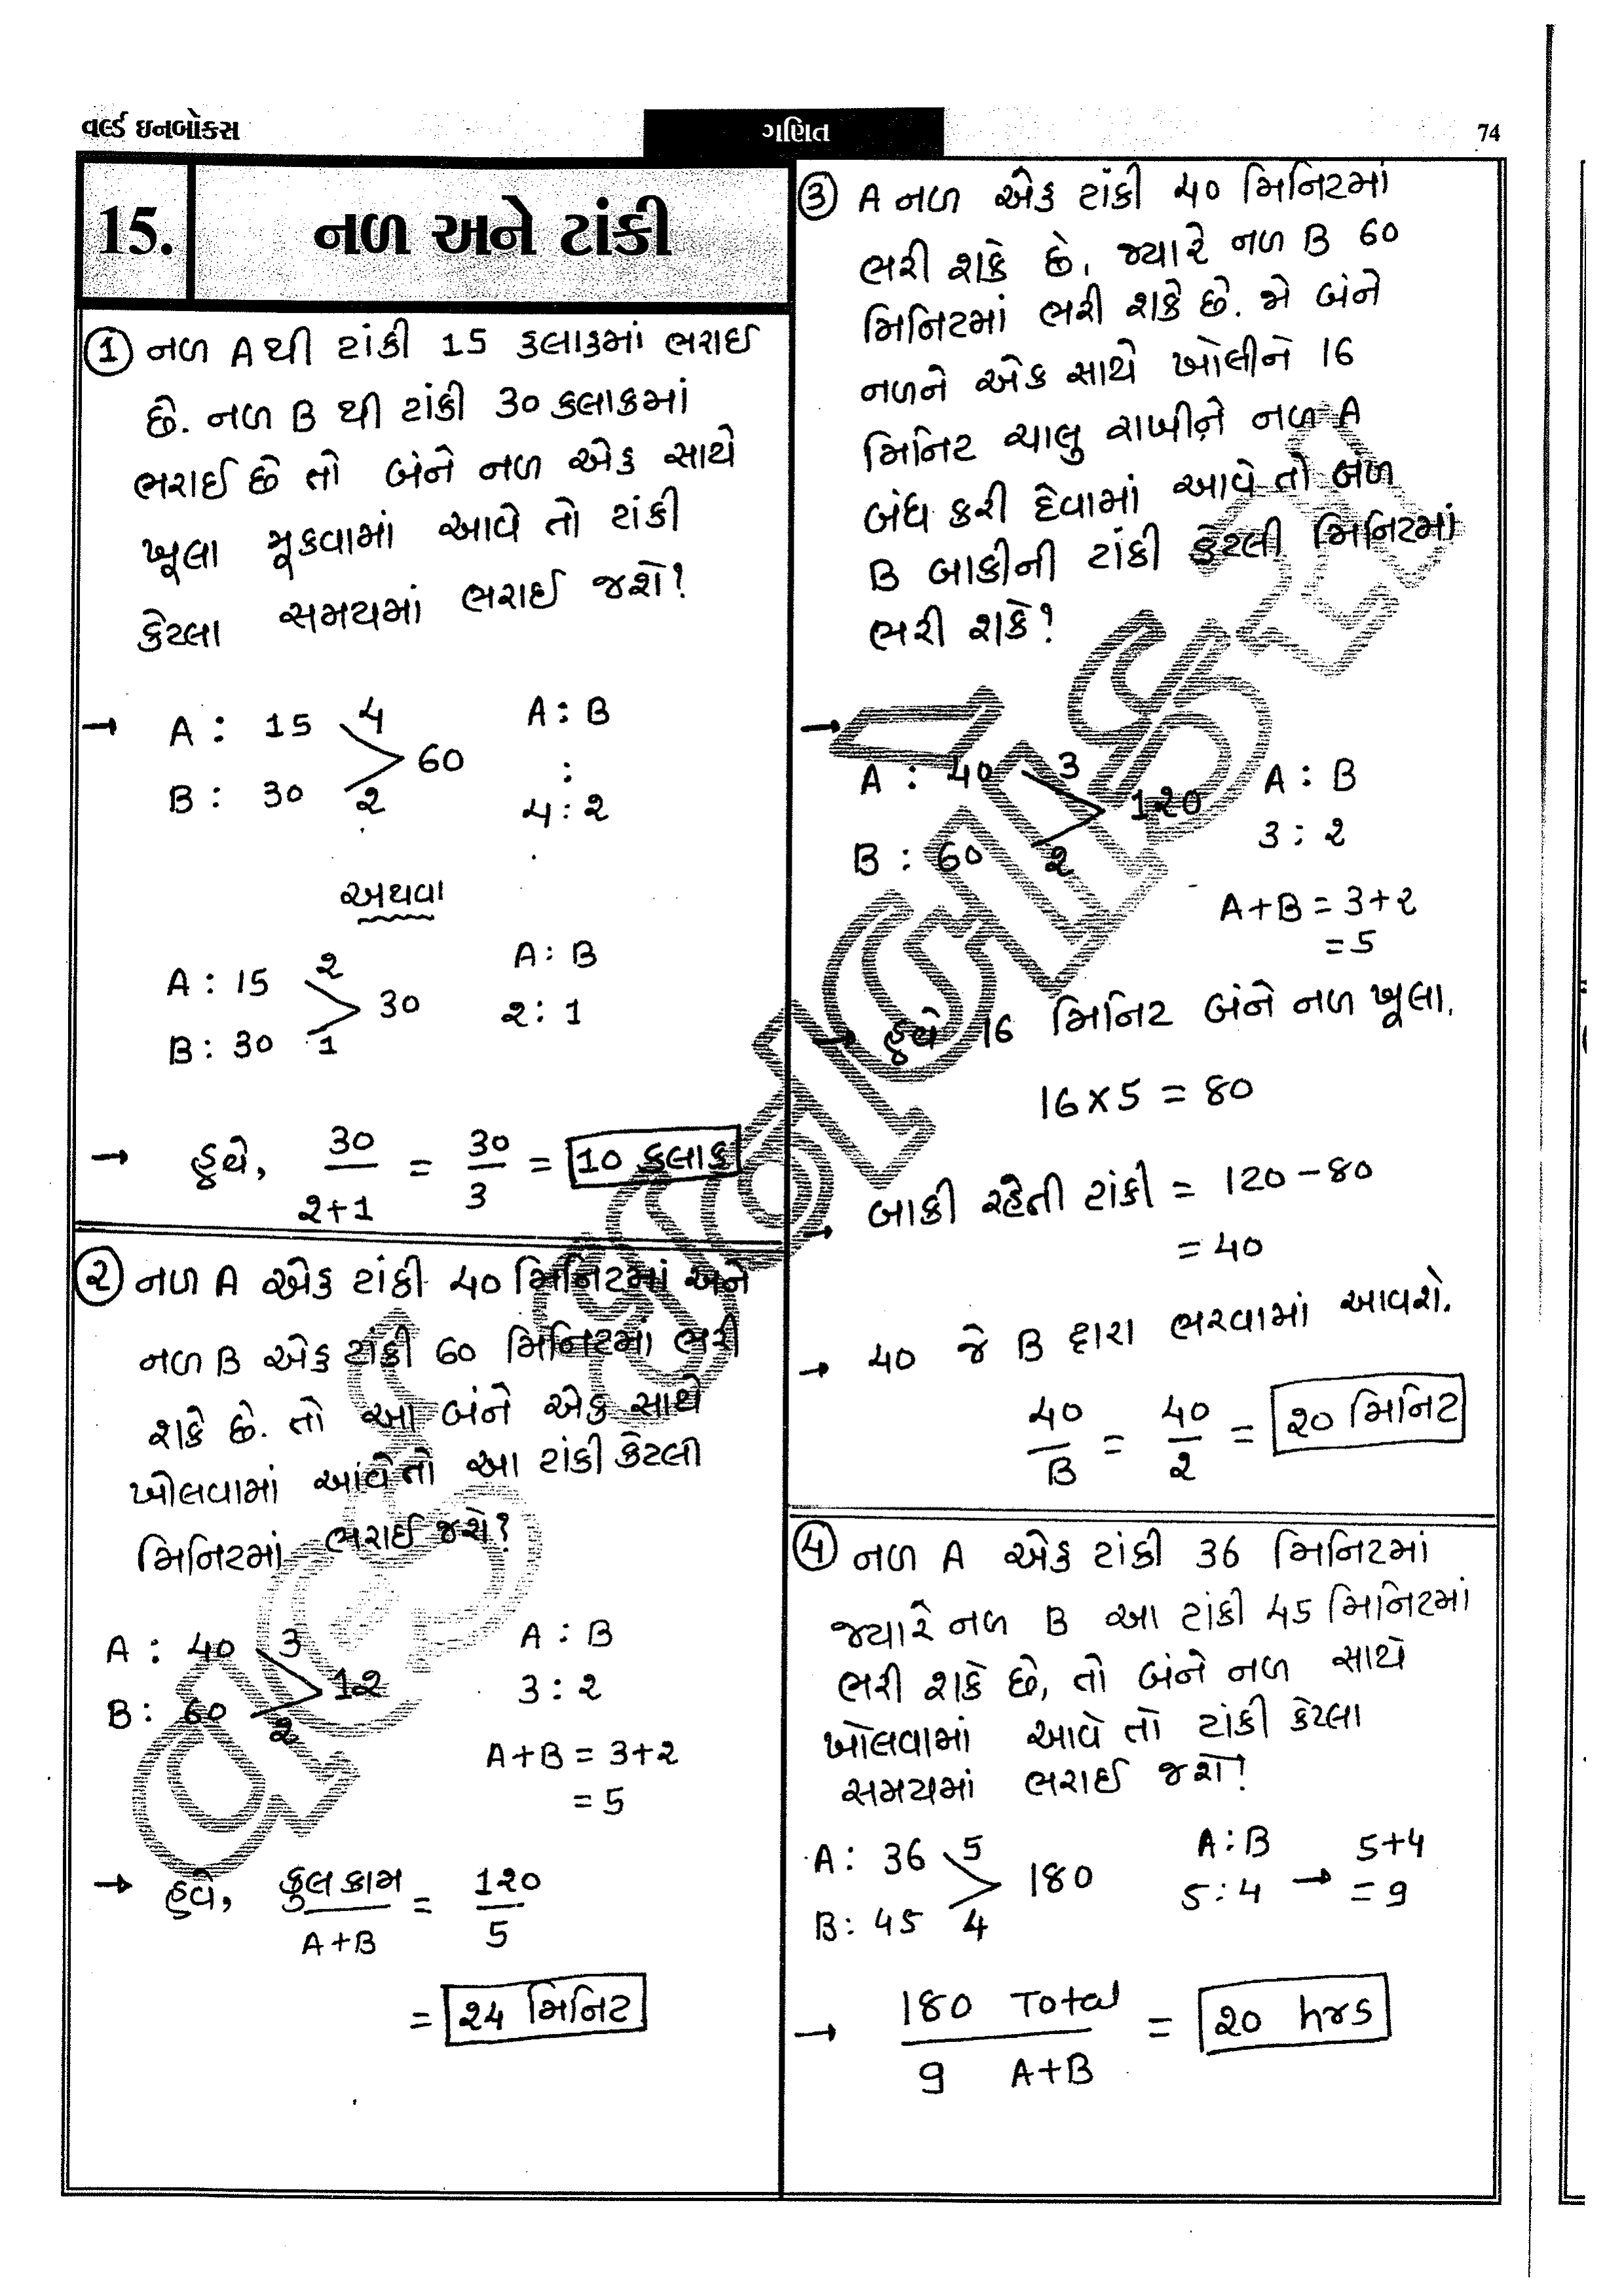 વર્લ્ડ ઇનબોક્સ
ગણિત
74
15.
નળ અને ટાંકી
① નળ A થી ટાંકી 15 કલાકમાં ભરાઈ
છે. નળ B થી ટાંકી 30 કલાકમાં
ભરાઈ છે તો બંને નળ એક સાથે
ખૂલા મૂકવામાં આવે તો ટાંકી
કેટલા સમયમાં ભરાઈ જશે?
→ A : 15 4 A : B
60 :
B : 30 2 4 : 2
અથવા
A : 15 2 A : B
30 2 : 1
B : 30 1
→ હવે, 30/2+1 = 30/3 = 10 કલાક
② નળ A એક ટાંકી 40 મિનિટમાં અને
નળ B એક ટાંકી 60 મિનિટમાં ભરી
શકે છે. તો આ બંને એક સાથે
ખોલવામાં આવે તો આ ટાંકી કેટલી
મિનિટમાં ભરાઈ જશે?
A : 40 3 A : B
12 3 : 2
B : 60 2
A+B = 3+2
= 5
→ હવે, કુલ કામ/A+B = 120/5
= 24 મિનિટ
③ A નળ એક ટાંકી 40 મિનિટમાં
ભરી શકે છે. જ્યારે નળ B 60
મિનિટમાં ભરી શકે છે. જો બંને
નળને એક સાથે ખોલીને 16
મિનિટ ચાલુ રાખીને નળ A
બંધ કરી દેવામાં આવે તો નળ
B બાકીની ટાંકી કેટલી મિનિટમાં
ભરી શકે?
→
A : 40 3 A : B
120 3 : 2
B : 60 2
A+B = 3+2
= 5
→ હવે 16 મિનિટ બંને નળ ખૂલા.
16 x 5 = 80
→ બાકી રહેતી ટાંકી = 120 - 80
= 40
→ 40 જે B દ્વારા ભરવામાં આવશે.
40/B = 40/2 = 20 મિનિટ
④ નળ A એક ટાંકી 36 મિનિટમાં
જ્યારે નળ B આ ટાંકી 45 મિનિટમાં
ભરી શકે છે, તો બંને નળ સાથે
ખોલવામાં આવે તો ટાંકી કેટલા
સમયમાં ભરાઈ જશે?
A : 36 5 A : B 5+4
180 5 : 4 → = 9
B : 45 4
→ 180 Total/9 A+B = 20 hrs